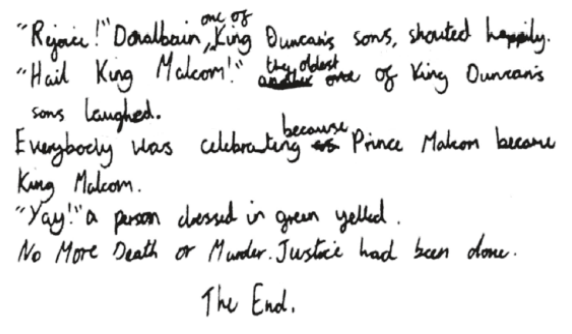 "Rejoice!" Donalbain, one of King Duncan's sons, shouted happily.
"Hail King Malcom!" the oldest of King Duncan's
sons laughed.
Everybody was celebrating because Prince Malcom became
King Malcom.
"Yay!" a person dressed in green yelled.
No More Death or Murder. Justice had been done.
The End.